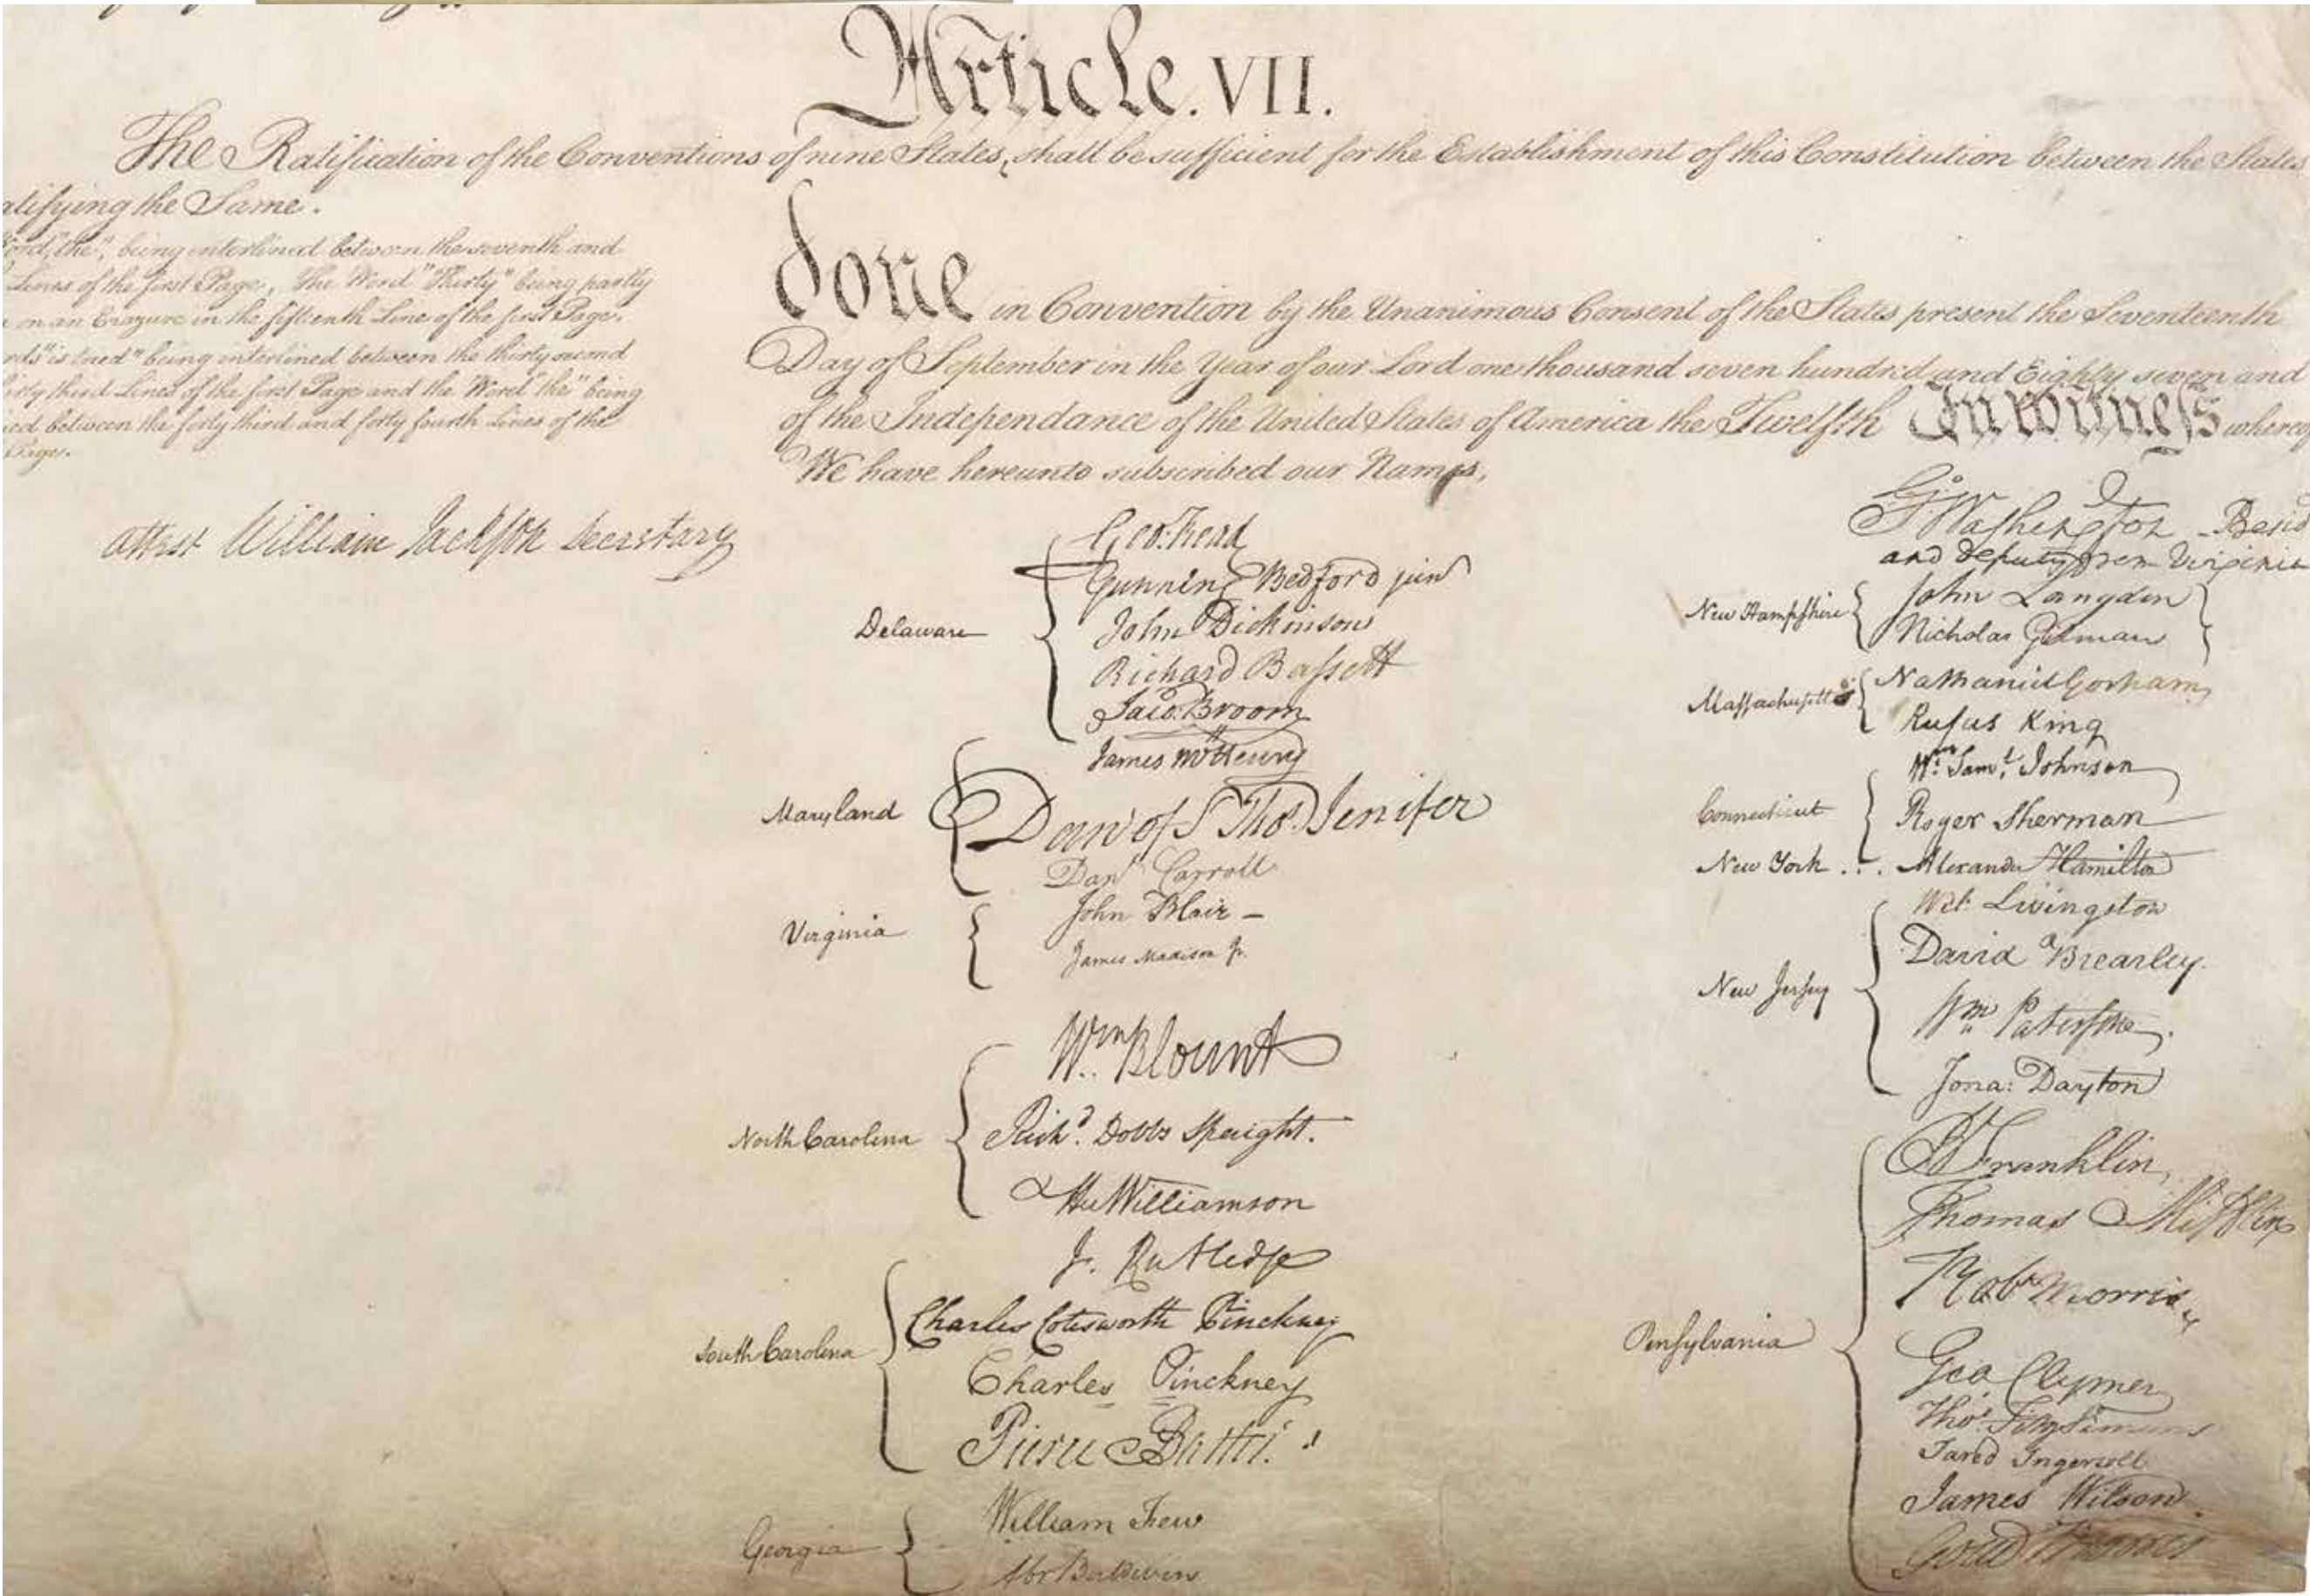 Article. VII.
The Ratification of the Conventions of nine States, shall be sufficient for the Establishment of this Constitution between the States
atifying the Same.
Word, "the", being interlined between the seventh and
Lines of the first Page, The Word "Thirty" being partly
on an Erazure in the fifteenth Line of the first Page,
rds "is tried" being interlined between the thirty second
hirty third Lines of the first Page and the Word "the" being
ed between the forty third and forty fourth Lines of the
Page.
attest William Jackson Secretary
done in Convention by the Unanimous Consent of the States present the Seventeenth
Day of September in the Year of our Lord one thousand seven hundred and Eighty seven and
of the Independance of the United States of America the Twelfth In witness whereof
We have hereunto subscribed our Names,
Delaware
Geo: Read
Gunning Bedford jun
John Dickinson
Richard Bassett
Jaco: Broom
Maryland
James McHenry
Dan of St Thos. Jenifer
Danl Carroll
Virginia
John Blair –
James Madison Jr.
North Carolina
Wm. Blount
Richd. Dobbs Spaight.
Hu Williamson
South Carolina
J. Rutledge
Charles Cotesworth Pinckney
Charles Pinckney
Pierce Butler.
Georgia
William Few
Abr Baldwin
Go. Washington – Presid
and deputy from Virginia
New Hampshire
John Langdon
Nicholas Gilman
Massachusetts
Nathaniel Gorham
Rufus King
Connecticut
Wm. Saml. Johnson
Roger Sherman
New York . . .
Alexander Hamilton
New Jersey
Wil: Livingston
David Brearley.
Wm Paterson.
Jona: Dayton
Pensylvania
B Franklin
Thomas Mifflin
Robt Morris
Geo. Clymer
Thos. FitzSimons
Jared Ingersoll
James Wilson
Gouv Morris